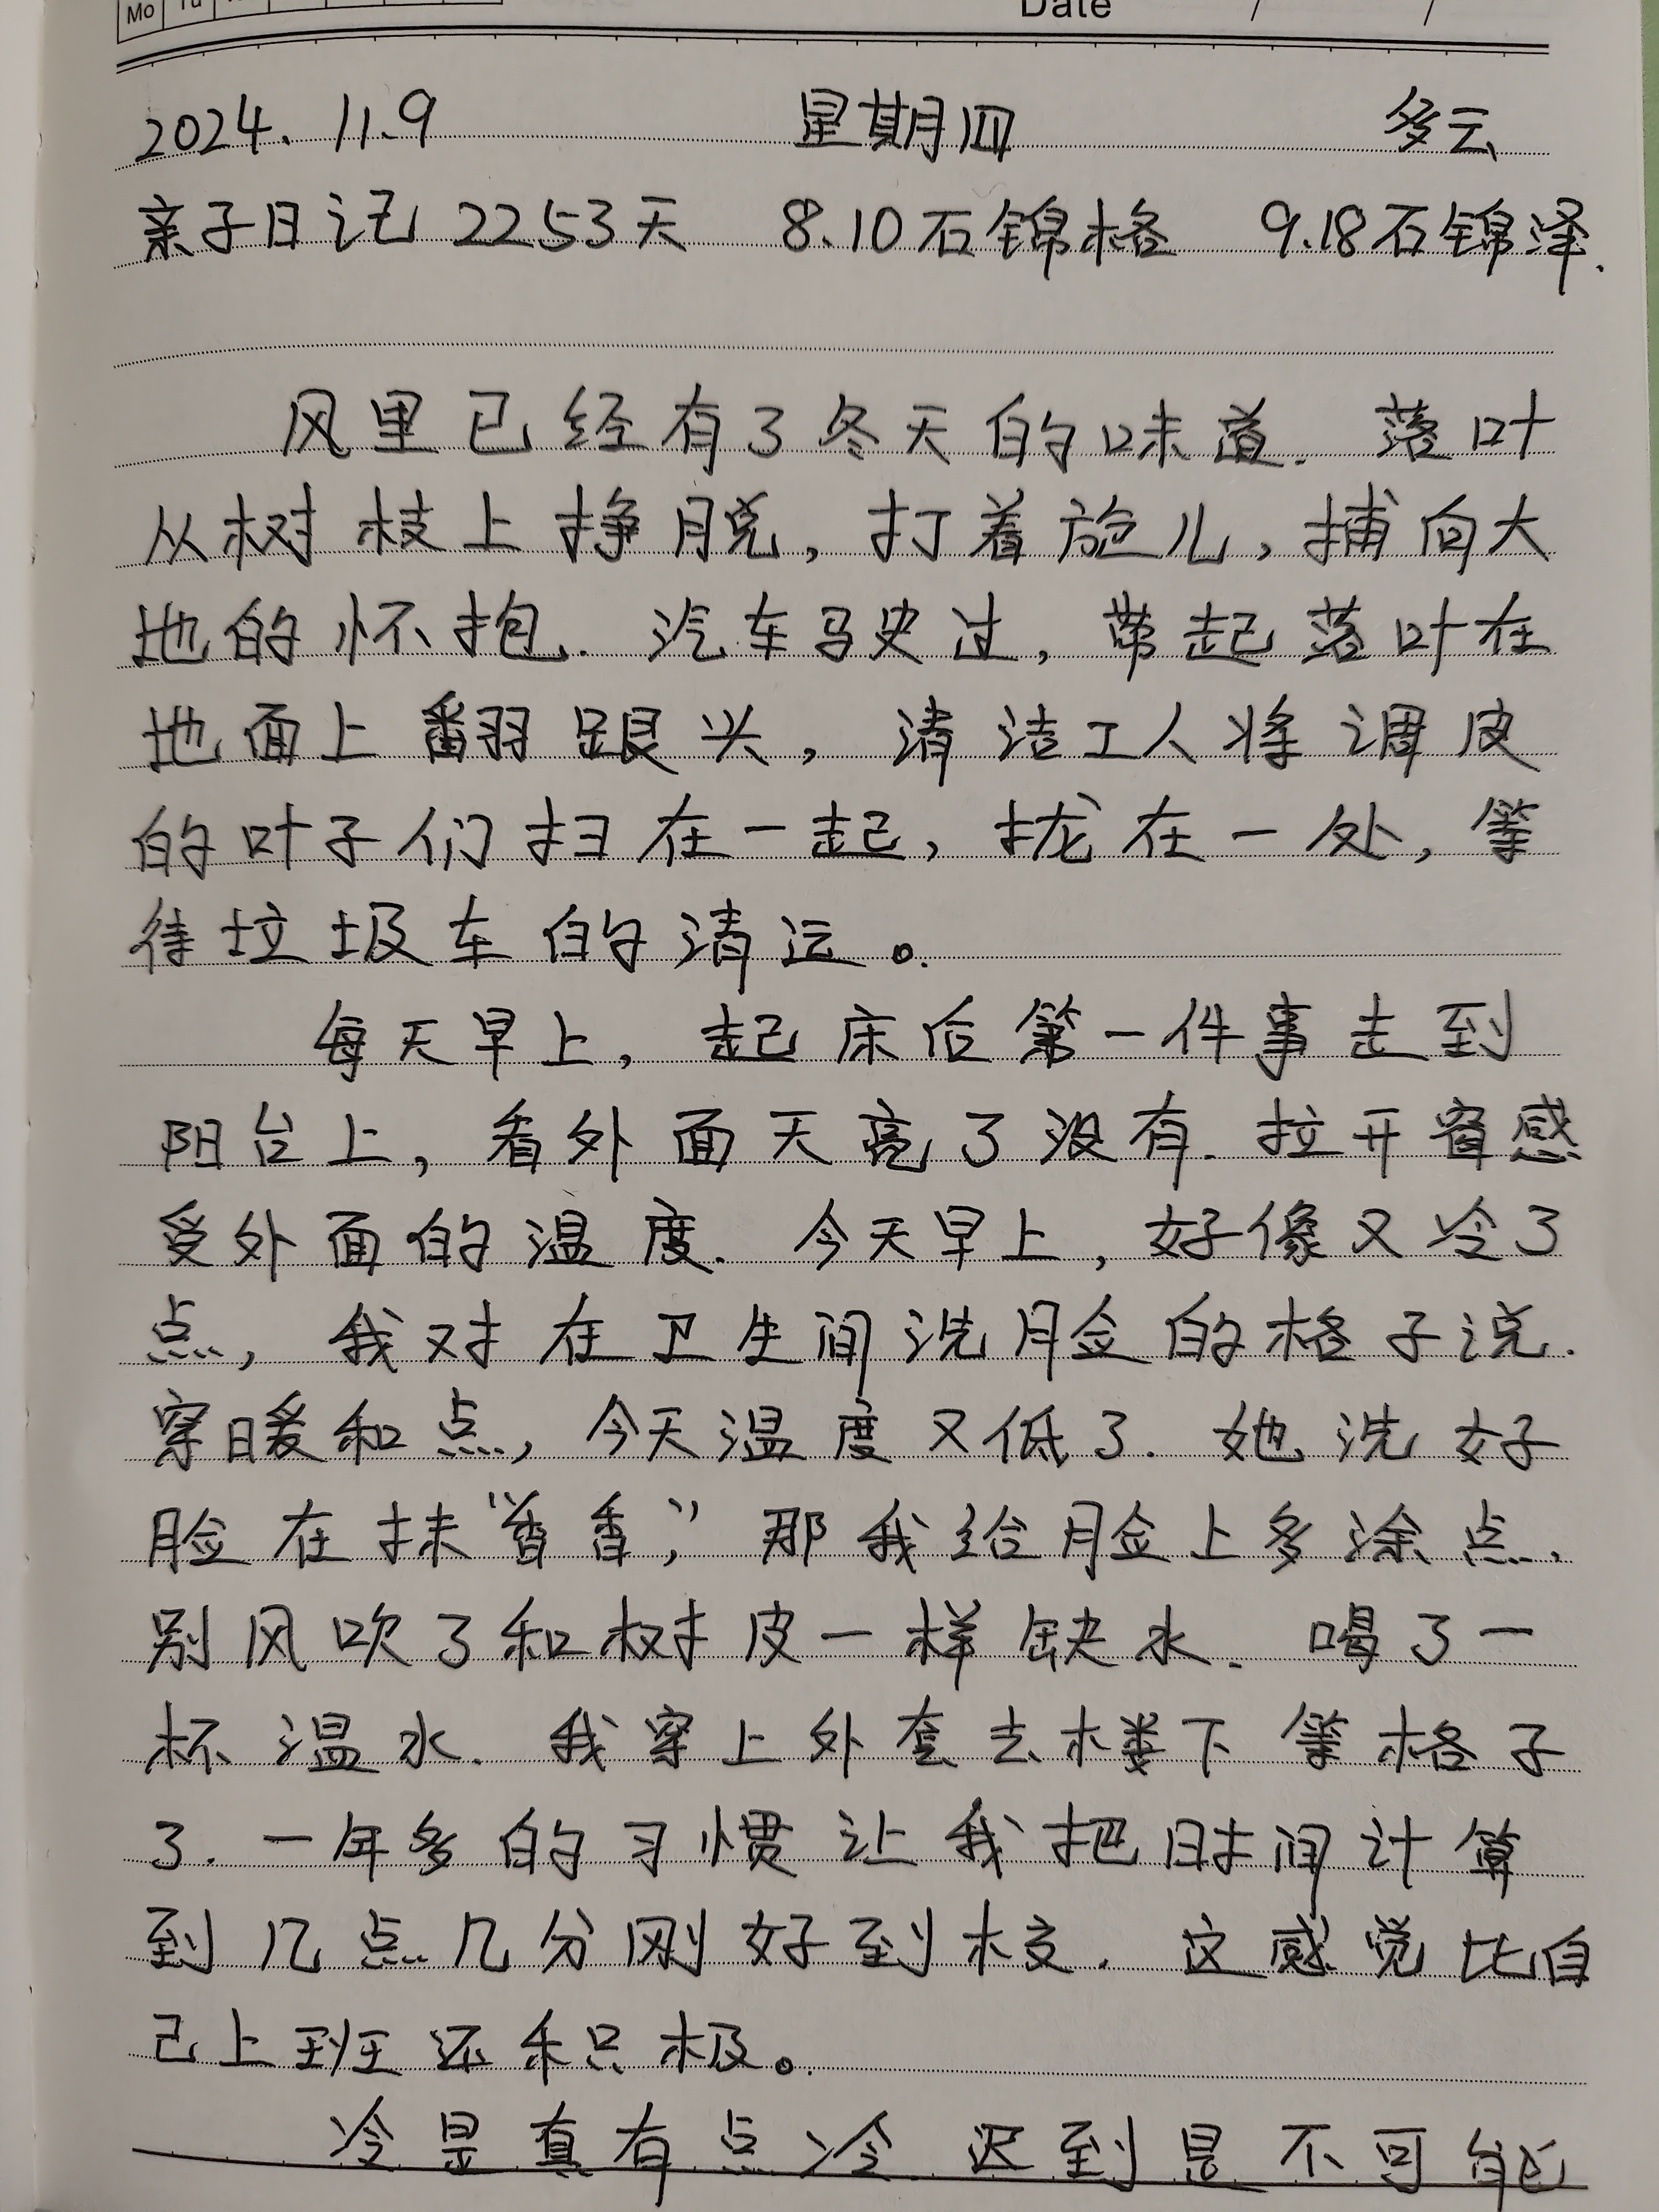 Mo Tu
Date / /
2024. 11.9 星期四 多云
亲子日记 2253天 8.10石锦格 9.18石锦泽.
风里已经有了冬天的味道. 落叶
从树枝上挣脱, 打着旋儿, 捕向大
地的怀抱. 汽车驶过, 带起落叶在
地面上翻跟头, 清洁工人将调皮
的叶子们扫在一起, 拢在一处, 等
待垃圾车的清运。
每天早上, 起床后第一件事走到
阳台上, 看外面天亮了没有. 拉开窗感
受外面的温度. 今天早上, 好像又冷了
点, 我对在卫生间洗脸的格子说.
穿暖和点, 今天温度又低了. 她洗好
脸在抹“香香”, 那我给脸上多涂点.
别风吹了和树皮一样缺水. 喝了一
杯温水. 我穿上外套去楼下等格子
了. 一年多的习惯让我把时间计算
到几点几分刚好到校. 这感觉比自
己上班还积极。
冷是真有点冷. 迟到是不可能